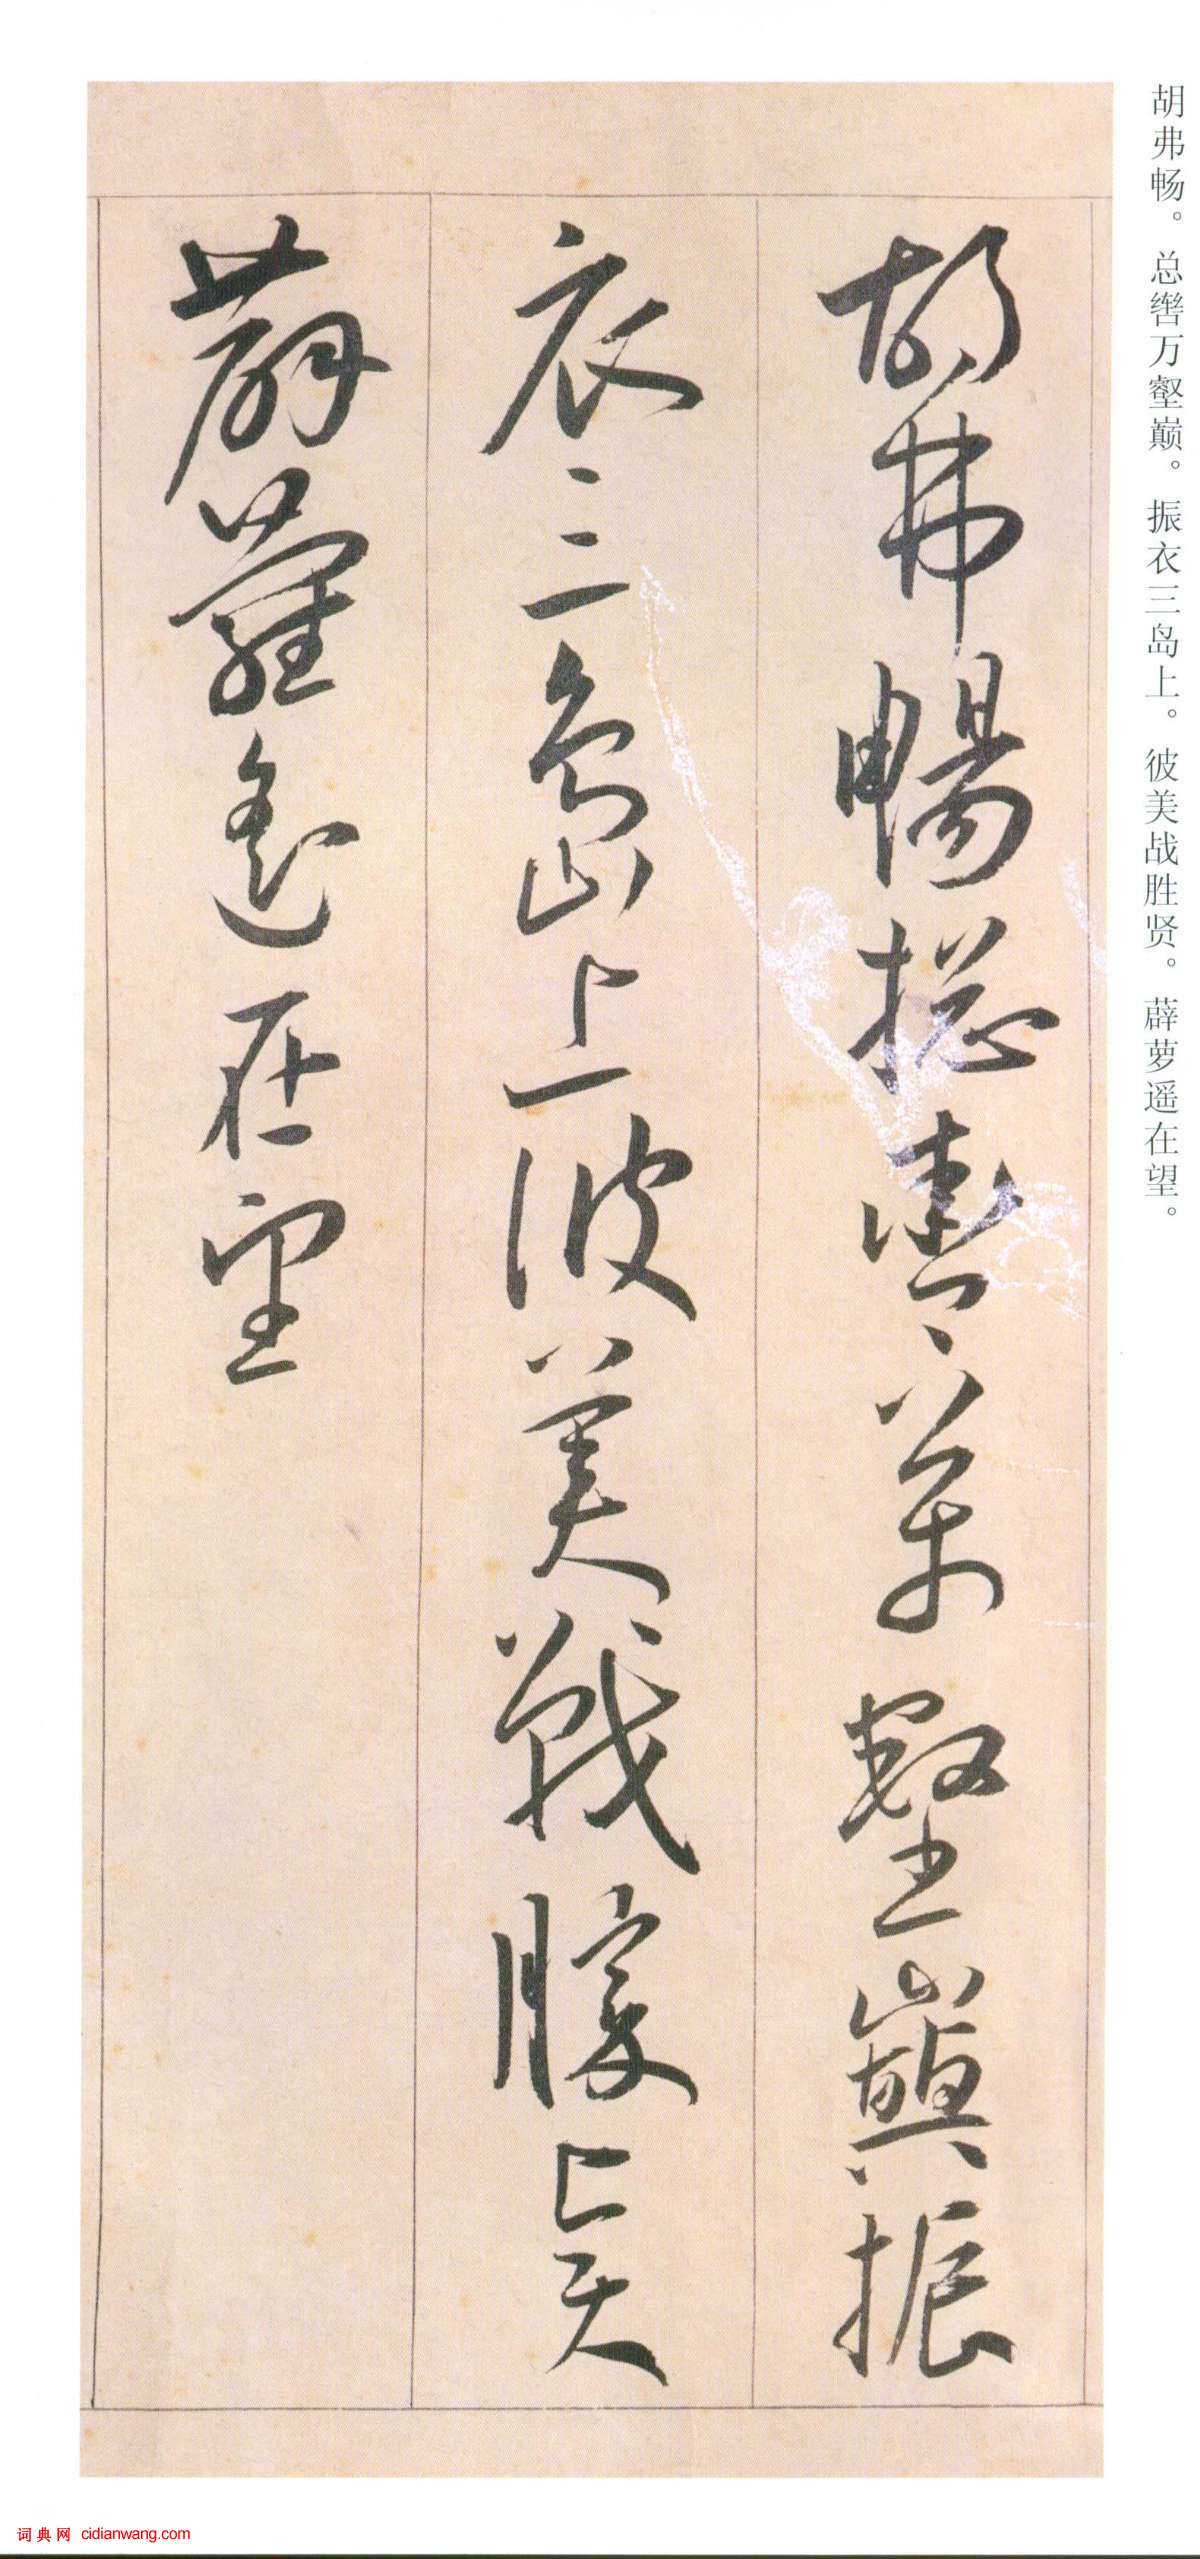 胡弗畅。总辔万壑巅。振衣三岛上。彼美战胜贤。薜萝遥在望。
胡弗暢揔轡萬壑巔振
衣三島上彼美戰勝賢
薜蘿遙在望
词典网 cidianwang.com